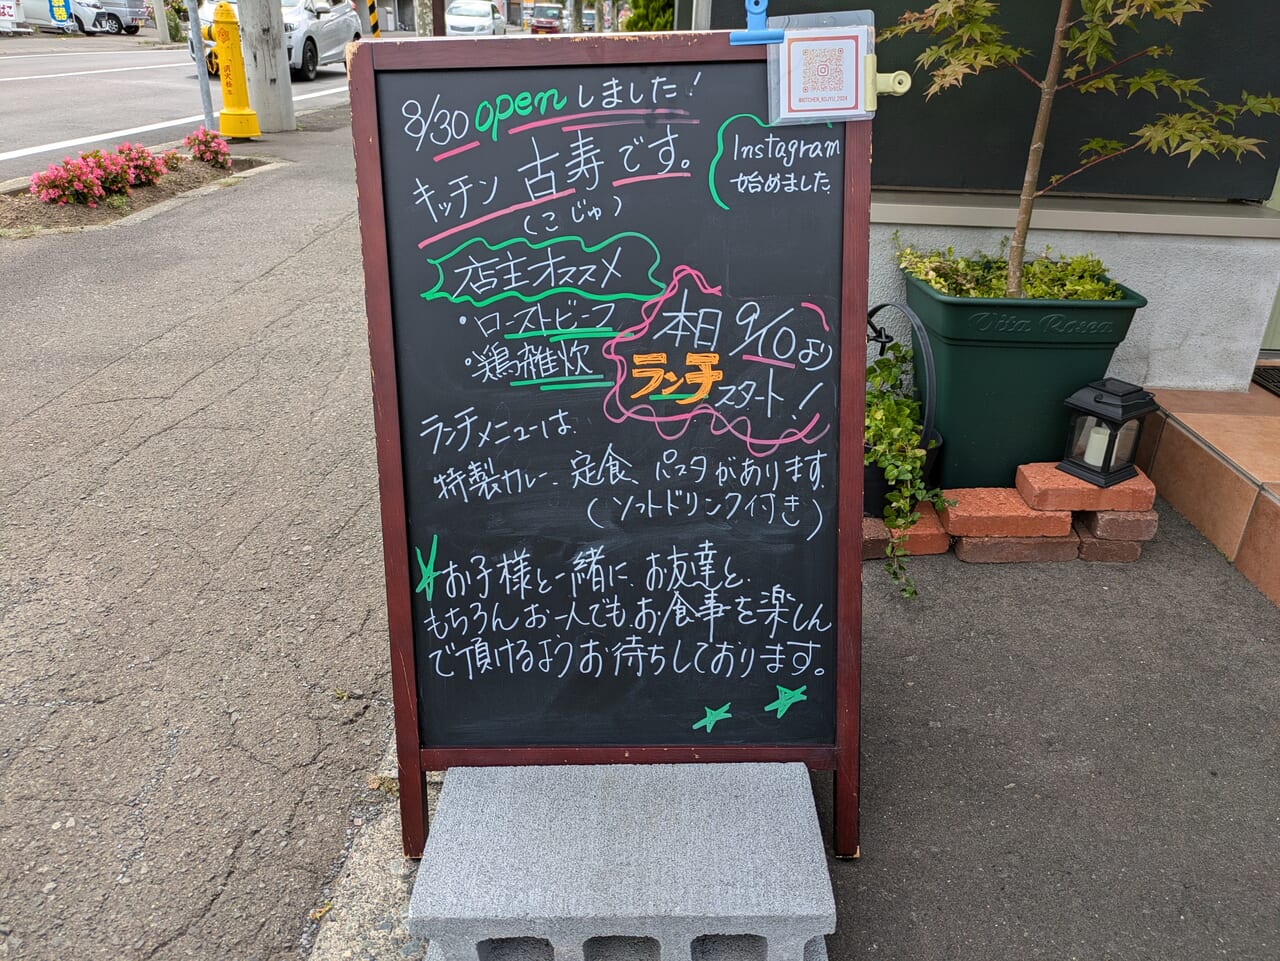 8/30 openしました!
キッチン 古寿です。
(こじゅ)
Instagram
始めました。
店主オススメ
・ローストビーフ
・鶏雑炊
本日 9/10より
ランチスタート!
ランチメニューは、
特製カレー、定食、パスタがあります。
(ソフトドリンク付き)
お子様と一緒に、お友達と、
もちろんお一人でも、お食事を楽しん
で頂けるようお待ちしております。
@KITCHEN_KOJYU_2024
Vita Rosea